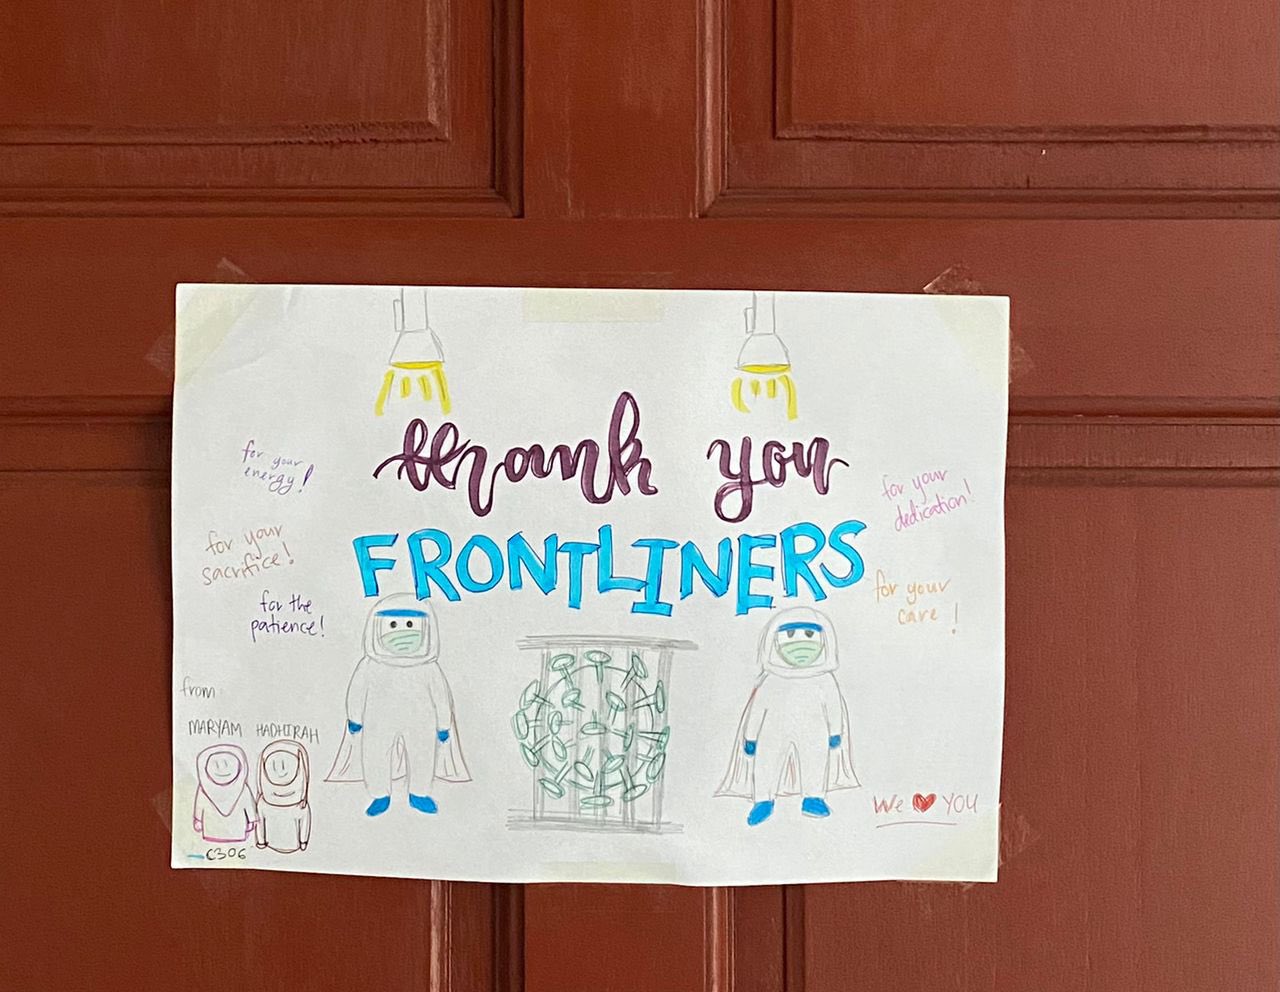 thank you
FRONTLINERS
for your
energy!
for your
sacrifice!
for the
patience!
for your
dedication!
for your
care!
from
MARYAM HADHIRAH
C306
We ❤ YOU